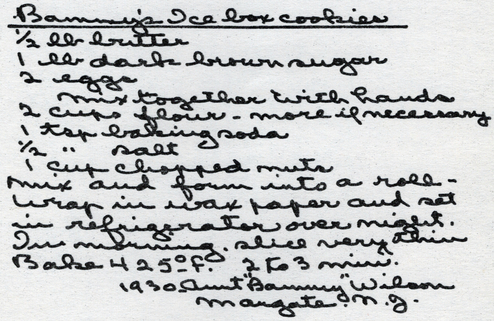 Bammy's Ice box cookies
1/2 lb butter
1 lb dark brown sugar
2 eggs
mix together with hands
2 cups flour - more if necessary
1 tsp baking soda
1/2 " salt
1 cup chopped nuts
Mix and form into a roll -
wrap in wax paper and set
in refrigerator over night.
In morning. slice very thin
Bake 425° f. 2 to 3 min.
1930. Aunt "Bammy" Wilson
Margate. N.J.